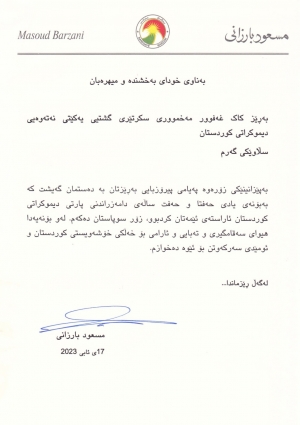 Masoud Barzani
مسعود بارزانی
بەناوی خودای بەخشندە و میهرەبان
بەڕێز کاک غەفوور مەخمووری سکرتێری گشتیی یەکێتی نەتەوەیی
دیموکراتی کوردستان
سڵاوێکی گەرم
بەپێزانینێکی زۆرەوە پەیامی پیرۆزبایی بەڕێزتان بە دەستمان گەیشت کە
بەبۆنەی یادی حەفتا و حەفت ساڵەی دامەزراندنی پارتی دیموکراتی
کوردستان ئاراستەی ئێمەتان کردبوو، زۆر سوپاستان دەکەم. لەو بۆنەیەدا
هیوای سەقامگیری و تەبایی و ئارامی بۆ خەڵکی خۆشەویستی کوردستان و
ئومێدی سەرکەوتن بۆ ئێوە دەخوازم.
لەگەڵ ڕێزماندا..
مسعود بارزانی
17ی ئابی 2023